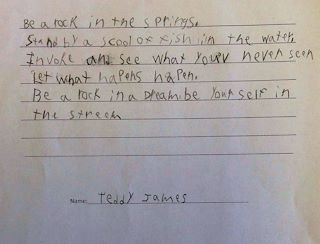 Be a rock in the springs.
Stand by a scool of fish iin the water.
Invoke and see what youev never seen
Let what hapens hapen.
Be a rock in a Dream be your self in
the streem
Name: Teddy James